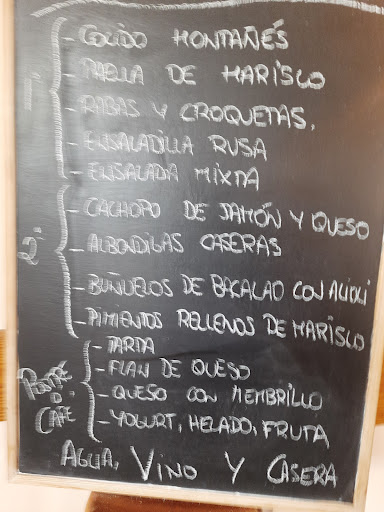 1º
- COCIDO MONTAÑÉS
- TABLA DE MARISCO
- RABAS Y CROQUETAS.
- ENSALADILLA RUSA
- ENSALADA MIXTA
2º
- CACHOPO DE JAMÓN Y QUESO
- ALBONDIGAS CASERAS
- BUÑUELOS DE BACALAO CON ALIOLI
- PIMIENTOS RELLENOS DE MARISCO
POSTRE
O
CAFÉ
- TARTA
- FLAN DE QUESO
- QUESO CON MEMBRILLO
- YOGURT, HELADO, FRUTA
AGUA, VINO Y CASERA